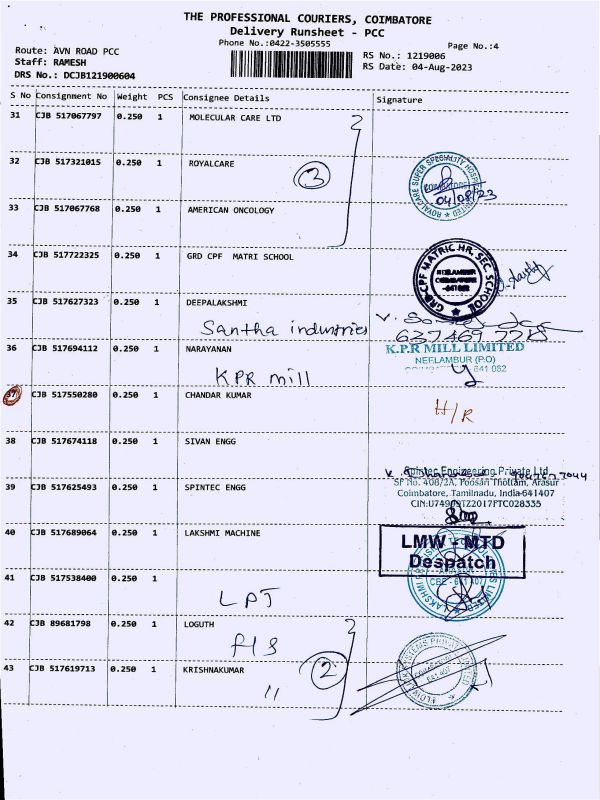 THE PROFESSIONAL COURIERS, COIMBATORE
Delivery Runsheet - PCC
Phone No.:0422-3505555
Page No.:4
Route: AVN ROAD PCC
RS No.: 1219006
Staff: RAMESH
RS Date: 04-Aug-2023
DRS No.: DCJB121900604
S No Consignment No Weight PCS Consignee Details Signature
31 CJB 517067797 0.250 1 MOLECULAR CARE LTD
32 CJB 517321015 0.250 1 ROYALCARE
3
ROYALCARE SUPER SPECIALITY
04/08/23
33 CJB 517067768 0.250 1 AMERICAN ONCOLOGY
34 CJB 517722325 0.250 1 GRD CPF MATRI SCHOOL
GRD-CPF MATRIC HR. SEC. SCHOOL
NEELAMBUR
COIMBATORE
35 CJB 517627323 0.250 1 DEEPALAKSHMI
Santha industries
36 CJB 517694112 0.250 1 NARAYANAN
K.P.R MILL LIMITED
NEELAMBUR (P.O)
641 062
KPR mill
37 CJB 517550280 0.250 1 CHANDAR KUMAR
H/R
38 CJB 517674118 0.250 1 SIVAN ENGG
Spintec Engineering Private Ltd
39 CJB 517625493 0.250 1 SPINTEC ENGG
SF No. 408/2A, Poosari Thottam, Arasur
Coimbatore, Tamilnadu, India-641407
40 CJB 517689064 0.250 1 LAKSHMI MACHINE
LMW - MTD
Despatch
41 CJB 517538400 0.250 1
LPT
42 CJB 89681798 0.250 1 LOGUTH
43 CJB 517619713 0.250 1 KRISHNAKUMAR
"
2